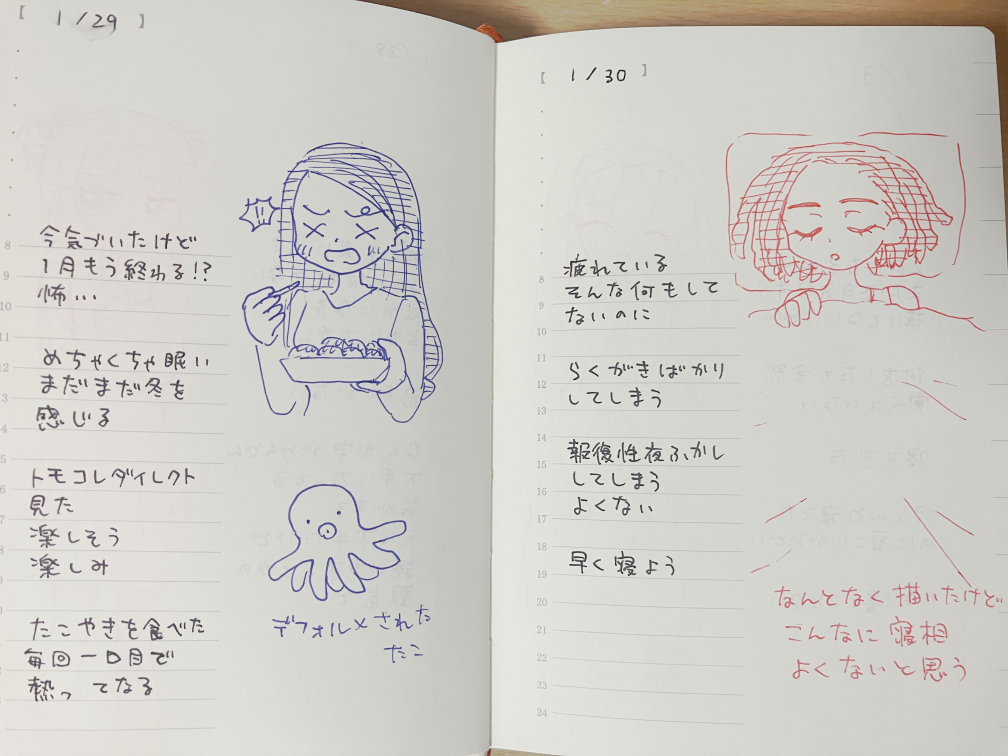 【 1/29 】
8
今気づいたけど
9
1月もう終わる!?
10
怖…
11
めちゃくちゃ眠い
12
まだまだ冬を
感じる
トモコレダイレクト
見た
楽しそう
楽しみ
たこやきを食べた
毎回一口目で
熱っ てなる
!!
デフォルメされた
たこ
【 1/30 】
8
疲れている
9
そんな何もして
10
ないのに
11
12
らくがきばかり
13
してしまう
14
15
報復性夜ふかし
16
してしまう
17
よくない
18
19
早く寝よう
20
21
22
23
24
なんとなく描いたけど
こんなに寝相
よくないと思う